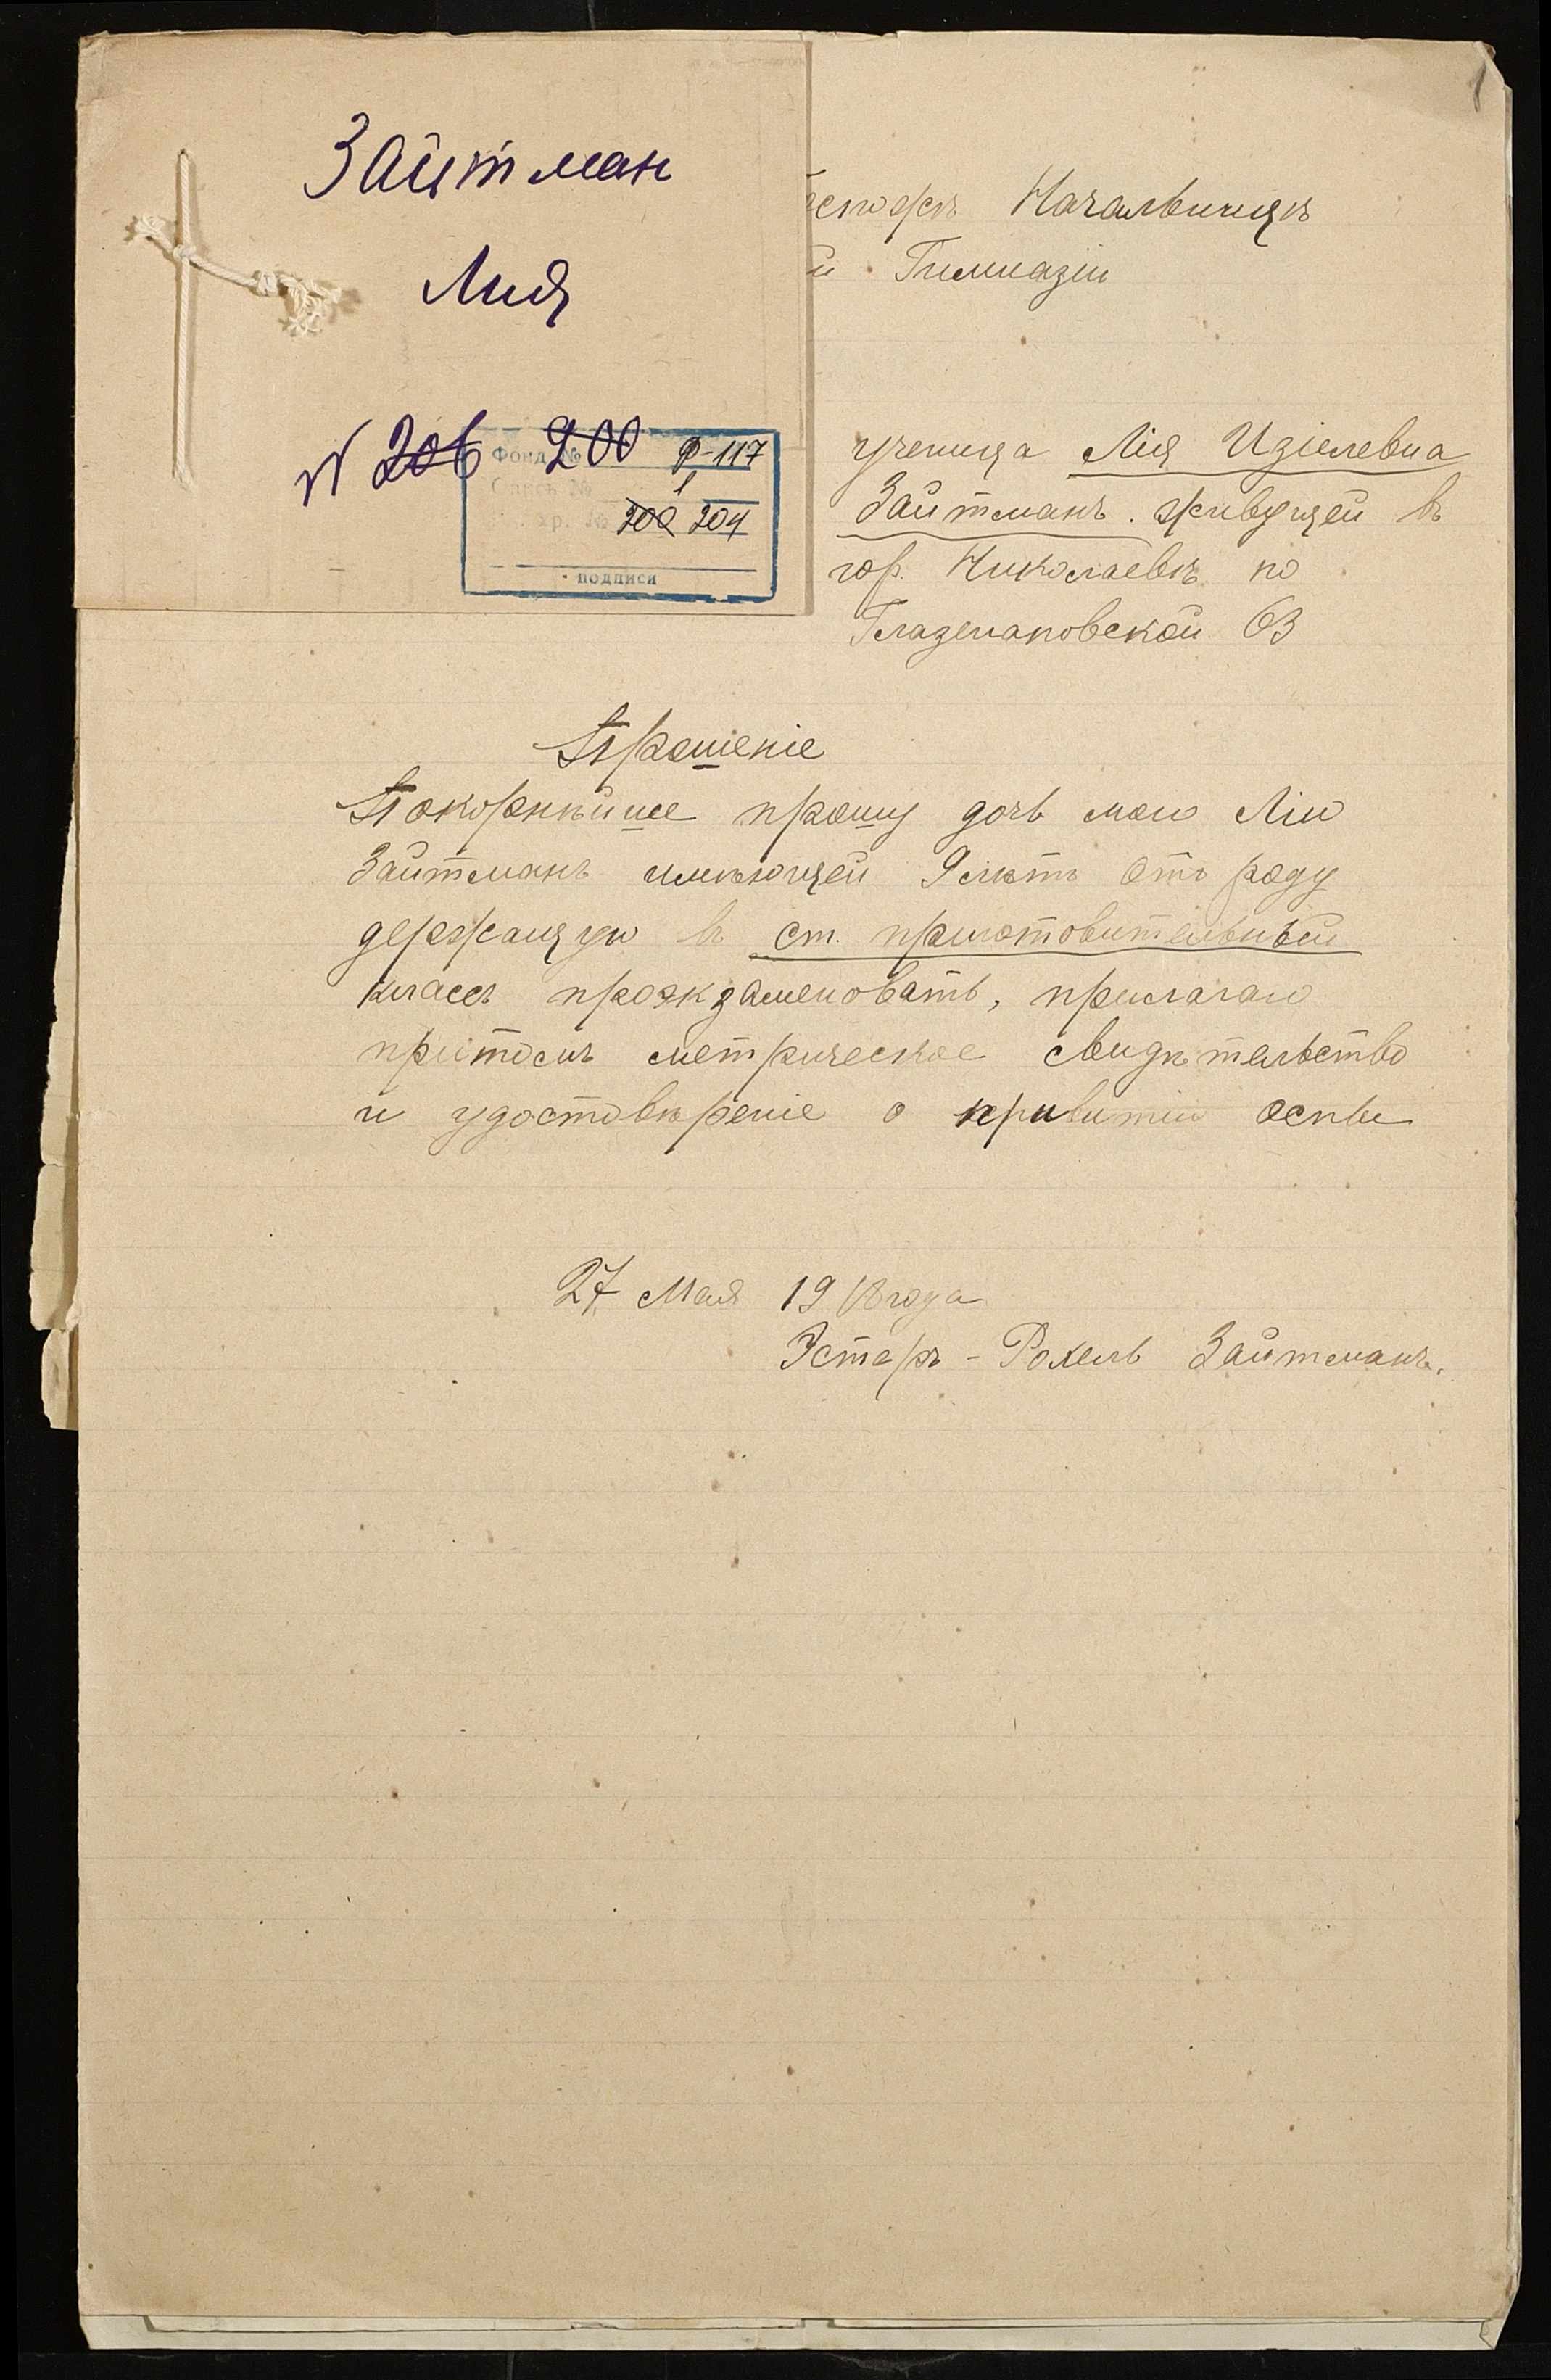 Зайтман
Лия
N 206 200
Фонд № Ф-117
Опись № 1
хр. № 200 204
подписи
1
Начальницѣ
й Гимназіи
ученица Лія Изіелевна
Зайтманъ. живущей въ
гор. Николаевѣ по
Глазенаповской 63
Прошеніе
Покорнѣйше прошу дочь мою Лію
Зайтманъ имѣющей 9 лѣтъ отъ роду
держащую въ ст. приготовительный
классъ проэкзаменовать, прилагаю
притомъ метрическое свидѣтельство
и удостовѣреніе о привитіи оспы
27 Мая 1918 года
Эстеръ-Рохель Зайтманъ.